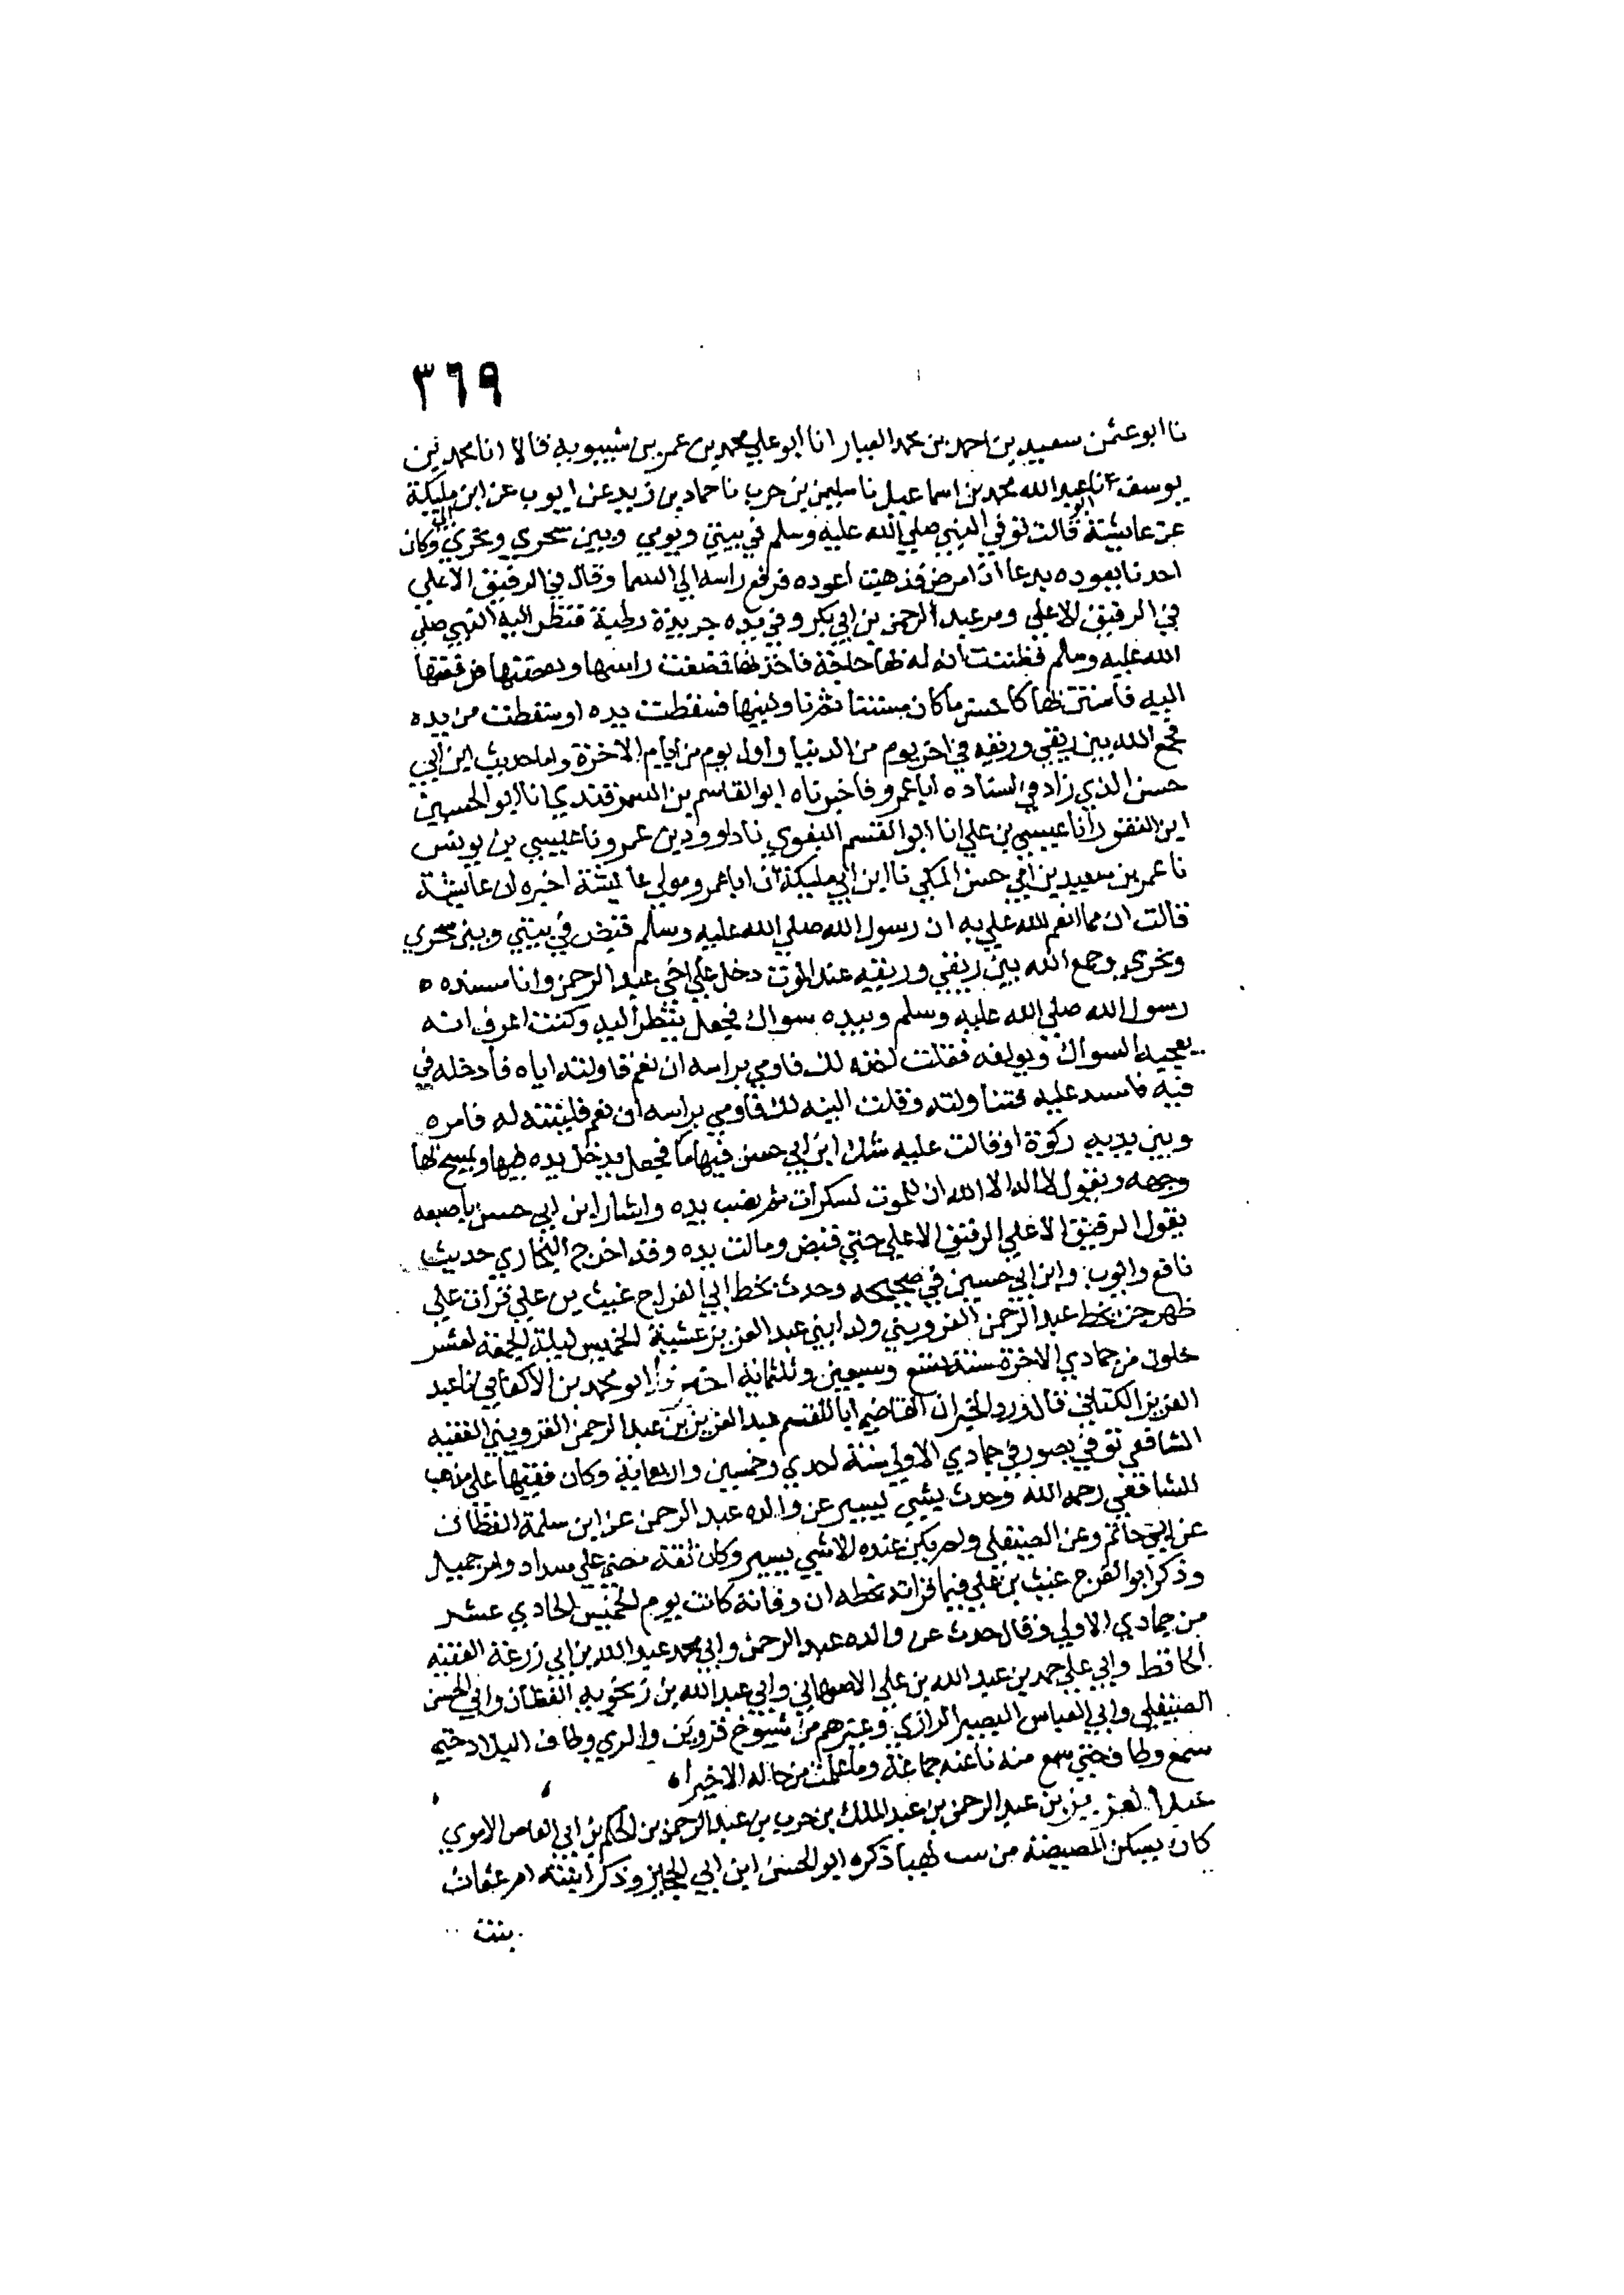 ٣٦٩
نا ابو عثمن سعيد بن احمد بن محمد العيار انا ابو علي محمد بن عمر بن شبويه قالا انا محمد بن
يوسف انا ابو عبد الله محمد بن اسماعيل نا سليمن بن حرب نا حماد بن زيد عن ايوب عن ابن ابي مليكة
عن عايشة قالت توفي النبي صلي الله عليه وسلم في بيتي ويومي وبين سحري ونحري وكان
احدنا يعوده بدعا اذا مرض فذهبت اعوده فرفع راسه الي السما وقال في الرفيق الاعلي
في الرفيق الاعلي ومر عبد الرحمن بن ابي بكر وفي يده جريدة رطبة فنظر اليه النبي صلي
الله عليه وسلم فظننت ان له بها حاجة فاخذتها فمضغت راسها ونفضتها فدفعتها
اليه فاستن بها كاحسن ما كان مستنا ثم ناولنيها فسقطت يده او سقطت من يده
فجمع الله بين ريقي وريقه في اخر يوم من الدنيا واول يوم من ايام الاخرة واما حديث ابن ابي
حسن الذي زاد في اسناده ابا عمرو فاخبرناه ابو القاسم بن السمرقندي انا ابو الحسين
ابن النقور انا عيسي بن علي انا ابو القسم البغوي نا داوود بن عمرو نا عيسي بن يونس
نا عمر بن سعيد بن ابي حسن المكي نا ابن ابي مليكة ان ابا عمرو مولي عايشة اخبره ان عايشة
قالت ان مما انعم الله علي به ان رسول الله صلي الله عليه وسلم قبض في بيتي وبين سحري
ونحري وجمع الله بين ريقي وريقه عند الموت دخل علي اخي عبد الرحمن وانا مسنده
رسول الله صلي الله عليه وسلم وبيده سواك فجعل ينظر اليه وكنت اعرف انه
يعجبه السواك ويولفه فقلت اخذه لك فاومي براسه ان نعم فناولته اياه فادخله في
فيه فاسد عليه فتناولته وقلت الينه لك فاومي براسه ان نعم فلينته له فامره
وبين يديه ركوة او قالت علبه شك ابن ابي حسن فيها ما فجعل يدخل يده فيها ويمسح بها
وجهه ويقول لا اله الا الله ان للموت لسكرات ثم نصب يده واشار ابن ابي حسن باصبعه
يقول الرفيق الاعلي الرفيق الاعلي حتي قبض ومالت يده وقد اخرج البخاري حديث
نافع وايوب وابن ابي حسين في صحيحه وجدت بخط ابي الفراج غيث بن علي قرات علي
ظهر جزء بخط عبد الرحمن القزويني ولد ابني عبد العزيز عشية الخميس ليلة الجمعة لعشر
خلون من جمادي الاخرة سنة تسع وسبعين وثلثماية ابو محمد بن الاكفاني نا عبد
العزيز الكتاني قال ورد الخبر ان القاضي ابا القسم عبد العزيز بن عبد الرحمن القزويني الفقيه
الشافعي توفي بصور في جمادي الاولي سنة احدي وخمسين واربعماية وكان فقيها علي مذهب
الشافعي رحمه الله وحدث بشي يسير عن والده عبد الرحمن عن ابن سلمة القطان
عن ابي حاتم وعن الصيقلي ولم يكن عنده الا شي يسير وكان ثقة مضي علي سداد وامر جميل
وذكر ابو الفرج غيث بن علي فيما قراته بخطه ان وفاته كانت يوم الخميس الحادي عشر
من جمادي الاولي وقال حدث عن والده عبد الرحمن وابي محمد عبد الله بن ابي زرعة الفقيه
الحافظ وابي علي حمد بن عبد الله بن علي الاصبهاني وابي عبد الله بن زنجويه القطان وابي الحسن
الصيقلي وابي العباس البصير الرازي وغيرهم من شيوخ قزوين والري وطاف البلاد حتي
سمع وطاف حتي سمع منه نا عنه جماعة وما علمت من حاله الا خيرا ه
عبد العزيز بن عبد الرحمن بن عبد الملك بن حرب بن عبد الرحمن بن الحكم بن ابي العاص الاموي
كان يسكن المصيصة من لهيا ذكره ابو الحسن ابن ابي العجايز وذكر ابنته ام عثمان
بنت